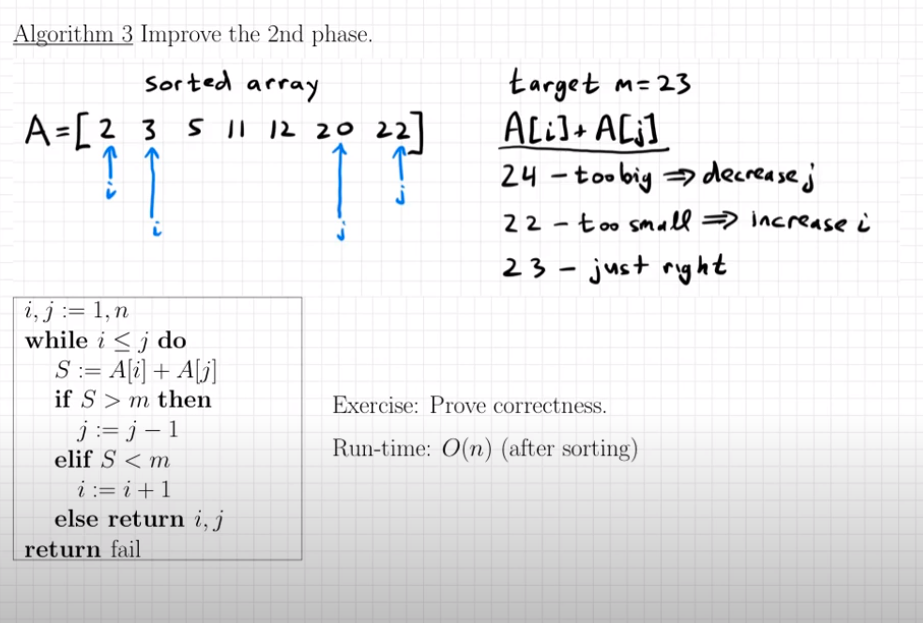 Algorithm 3 Improve the 2nd phase.
sorted array
A=[2 3 5 11 12 20 22]
i
i
j
j
target m=23
A[i]+A[j]
24 - too big ⇒ decrease j
22 - too small ⇒ increase i
23 - just right
i, j := 1, n
while i ≤ j do
S := A[i] + A[j]
if S > m then
j := j − 1
elif S < m
i := i + 1
else return i, j
return fail
Exercise: Prove correctness.
Run-time: O(n) (after sorting)